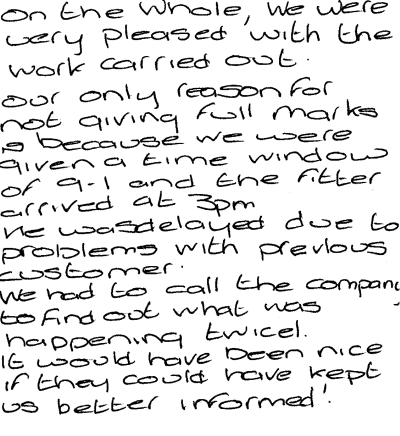 On the whole, we were
very pleased with the
work carried out.
Our only reason for
not giving full marks
is because we were
given a time window
of 9-1 and the fitter
arrived at 3pm
He was delayed due to
problems with previous
customer.
We had to call the company
to find out what was
happening twice!.
It would have been nice
if they could have kept
us better informed!